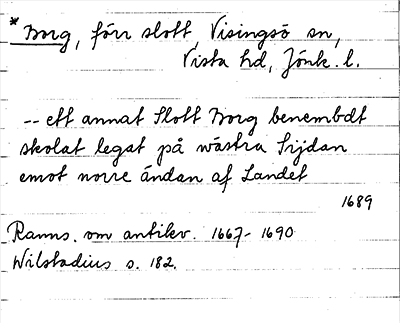 * Borg, förr slott, Visingsö sn,
Vista hd, Jönk. l.
-- ett annat Slott Borg benembdt
skolat legat på wästra Sijdan
emot norre ändan af Landet
1689
Ranns. om antikv. 1667-1690
Wilstadius s. 182.